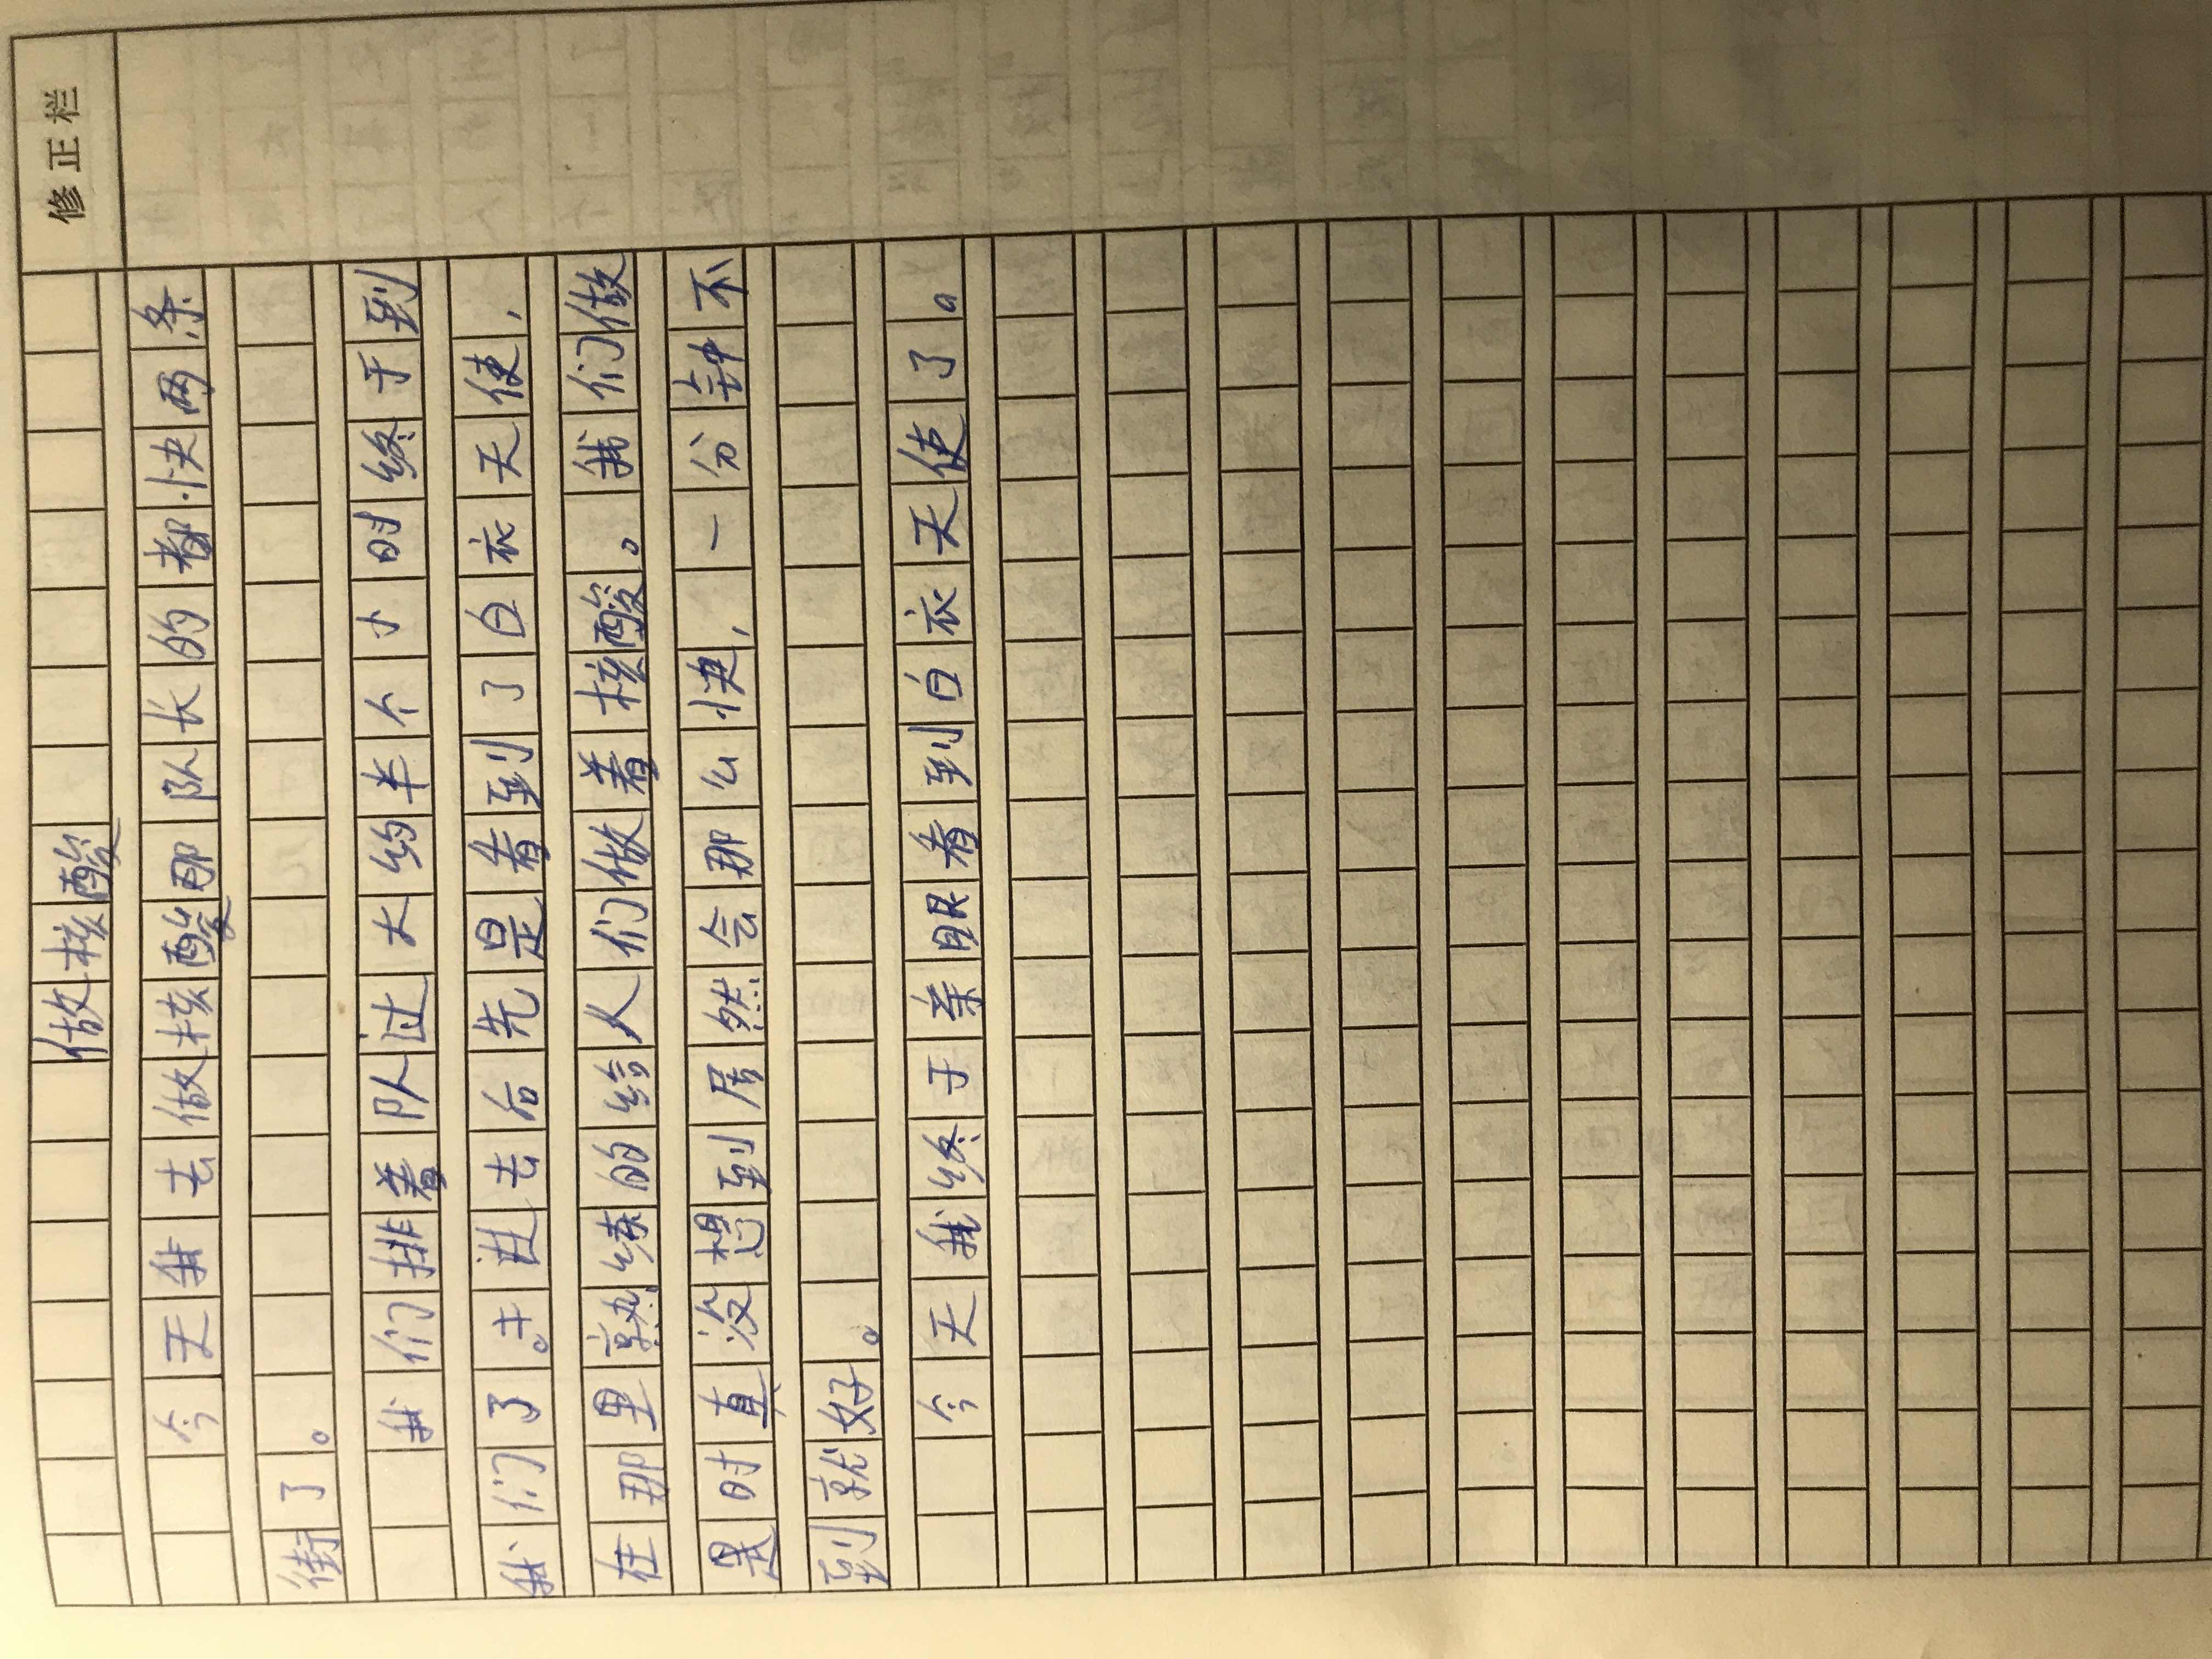 修正栏
做核酸
今天我去做核酸那队长的都快两条
街了。
我们排着队过大约半个小时终于到
我们了。进去后先是看到了白衣天使,
在那里熟练的给人们做着核酸。我们做
是时真没想到居然会那么快,一分钟不
到就好。
今天我终于亲眼看到白衣天使了。